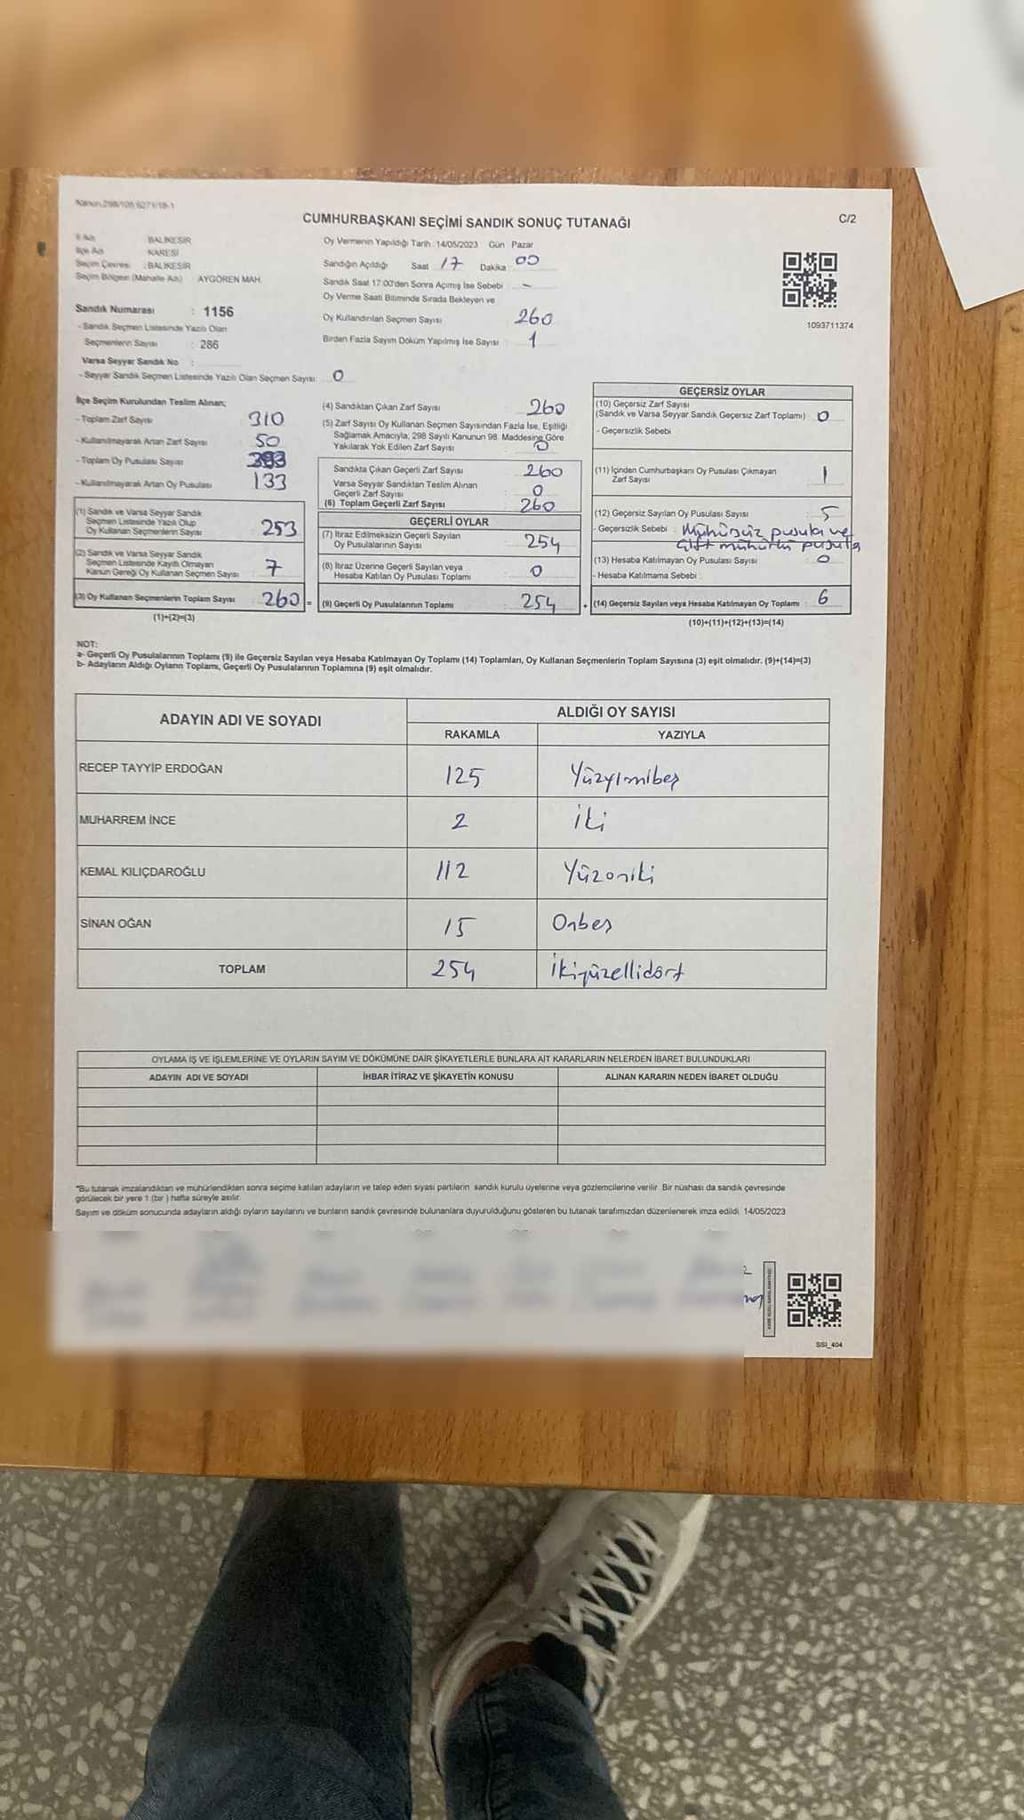 Kanun 298/105 6271/18-1
CUMHURBAŞKANI SEÇİMİ SANDIK SONUÇ TUTANAĞI
C/2
İl Adı BALIKESİR
İlçe Adı KARESİ
Seçim Çevresi : BALIKESİR
Seçim Bölgesi (Mahalle Adı) AYGÖREN MAH.
Sandık Numarası : 1156
- Sandık Seçmen Listesinde Yazılı Olan
Seçmenlerin Sayısı : 286
Varsa Seyyar Sandık No :
- Seyyar Sandık Seçmen Listesinde Yazılı Olan Seçmen Sayısı: 0
Oy Vermenin Yapıldığı Tarih :14/05/2023 Gün Pazar
Sandığın Açıldığı Saat 17 Dakika 00
Sandık Saat 17:00'den Sonra Açımış İse Sebebi : -
Oy Verme Saati Bitiminde Sırada Bekleyen ve
Oy Kullandırılan Seçmen Sayısı 260
Birden Fazla Sayım Döküm Yapılmış İse Sayısı 1
1093711374
İlçe Seçim Kurulundan Teslim Alınan;
- Toplam Zarf Sayısı 310
- Kullanılmayarak Artan Zarf Sayısı 50
- Toplam Oy Pusulası Sayısı 393
- Kullanılmayarak Artan Oy Pusulası 133
(1) Sandık ve Varsa Seyyar Sandık
Seçmen Listesinde Yazılı Olup
Oy Kullanan Seçmenlerin Sayısı 253
(2) Sandık ve Varsa Seyyar Sandık
Seçmen Listesinde Kayıtlı Olmayan
Kanun Gereği Oy Kullanan Seçmen Sayısı 7
(3) Oy Kullanan Seçmenlerin Toplam Sayısı 260 =
(1)+(2)=(3)
(4) Sandıktan Çıkan Zarf Sayısı 260
(5) Zarf Sayısı Oy Kullanan Seçmen Sayısından Fazla İse, Eşitliği
Sağlamak Amacıyla, 298 Sayılı Kanunun 98. Maddesine Göre
Yakılarak Yok Edilen Zarf Sayısı 0
Sandıkta Çıkan Geçerli Zarf Sayısı 260
Varsa Seyyar Sandıktan Teslim Alınan
Geçerli Zarf Sayısı 0
(6) Toplam Geçerli Zarf Sayısı 260
GEÇERLİ OYLAR
(7) İtiraz Edilmeksizin Geçerli Sayılan
Oy Pusulalarının Sayısı 254
(8) İtiraz Üzerine Geçerli Sayılan veya
Hesaba Katılan Oy Pusulası Toplamı 0
(9) Geçerli Oy Pusulalarının Toplamı 254 +
GEÇERSİZ OYLAR
(10) Geçersiz Zarf Sayısı
(Sandık ve Varsa Seyyar Sandık Geçersiz Zarf Toplamı) 0
- Geçersizlik Sebebi :
(11) İçinden Cumhurbaşkanı Oy Pusulası Çıkmayan
Zarf Sayısı 1
(12) Geçersiz Sayılan Oy Pusulası Sayısı : 5
- Geçersizlik Sebebi : Mühürsüz pusula ve
çift mühürlü pusula
(13) Hesaba Katılmayan Oy Pusulası Sayısı 0
- Hesaba Katılmama Sebebi :
(14) Geçersiz Sayılan veya Hesaba Katılmayan Oy Toplamı : 6
(10)+(11)+(12)+(13)=(14)
NOT:
a- Geçerli Oy Pusulalarının Toplamı (9) ile Geçersiz Sayılan veya Hesaba Katılmayan Oy Toplamı (14) Toplamları, Oy Kullanan Seçmenlerin Toplam Sayısına (3) eşit olmalıdır. (9)+(14)=(3)
b- Adayların Aldığı Oyların Toplamı, Geçerli Oy Pusulalarının Toplamına (9) eşit olmalıdır.
ADAYIN ADI VE SOYADI
ALDIĞI OY SAYISI
RAKAMLA YAZIYLA
RECEP TAYYİP ERDOĞAN 125 Yüzyirmibeş
MUHARREM İNCE 2 İki
KEMAL KILIÇDAROĞLU 112 Yüzoniki
SİNAN OĞAN 15 Onbeş
TOPLAM 254 İkiyüzellidört
OYLAMA İŞ VE İŞLEMLERİNE VE OYLARIN SAYIM VE DÖKÜMÜNE DAİR ŞİKAYETLERLE BUNLARA AİT KARARLARIN NELERDEN İBARET BULUNDUKLARI
ADAYIN ADI VE SOYADI İHBAR İTİRAZ VE ŞİKAYETİN KONUSU ALINAN KARARIN NEDEN İBARET OLDUĞU
*Bu tutanak imzalandıktan ve mühürlendikten sonra seçime katılan adayların ve talep eden siyasi partilerin sandık kurulu üyelerine veya gözlemcilerine verilir. Bir nüshası da sandık çevresinde
görülecek bir yere 1 (bir ) hafta süreyle asılır.
Sayım ve döküm sonucunda adayların aldığı oyların sayılarını ve bunların sandık çevresinde bulunanlara duyurulduğunu gösteren bu tutanak tarafımızdan düzenlenerek imza edildi. 14/05/2023
SSI_404